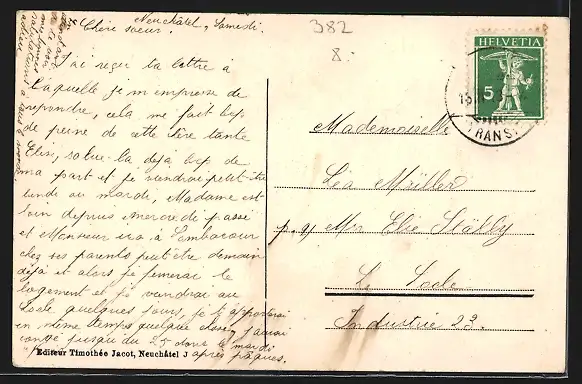 Neuchâtel, Samedi.
Chère soeur.
J'ai reçu ta lettre à
laquelle je m'empresse de
repondre, cela me fait bep
de peine de cette
salue-la déja bep de
ma part et je viendrai peut-être
lundi au mardi, Madame est
loin depuis mercredi passé
et Monsieur ira à
chez ses parents peut être demain
déjà et alors je fermerai le
logement et je viendrai au
Locle quelques jours, je t'apporterai
en même temps quelque chose, j'aurai
congé jusqu'au 25 donc le mardi
après pâques.
Editeur Timothée Jacot, Neuchâtel
382
8.
HELVETIA
5
TRANS.
Mademoiselle
Léa Müller
p. ad Mr Elie Stähly
Le Locle
Industrie 23.